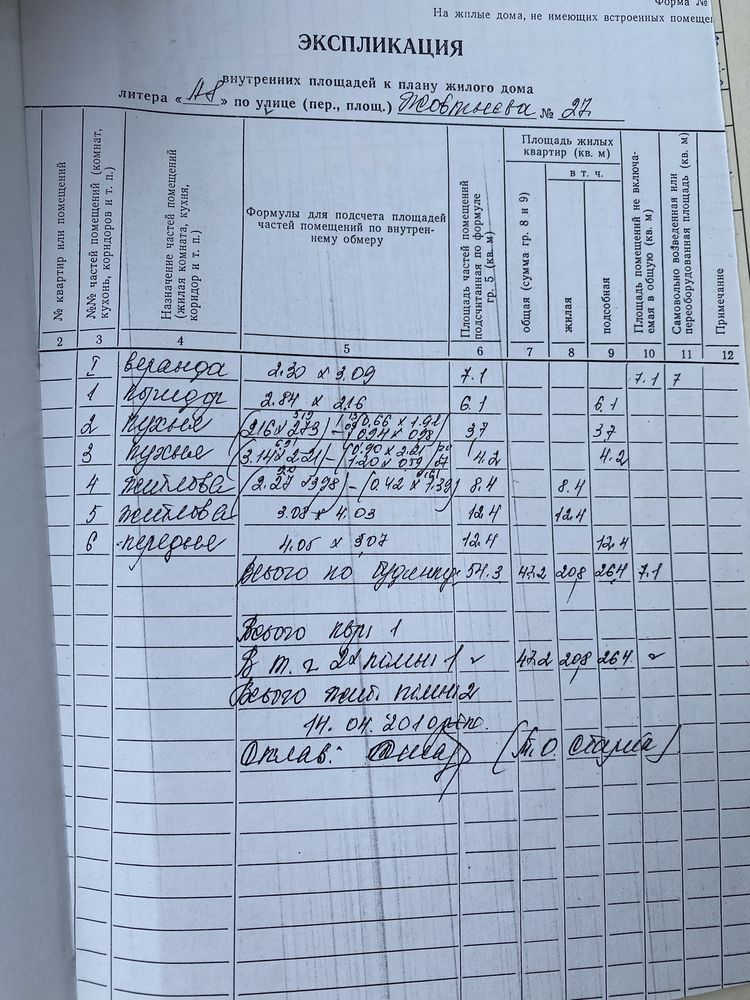 Форма №
На жилые дома, не имеющих встроенных помещен
ЭКСПЛИКАЦИЯ
внутренних площадей к плану жилого дома
литера «А8» по улице (пер., площ.) Жовтнева № 27
№ квартир или помещений
№№ частей помещений (комнат, кухонь, коридоров и т. п.)
Назначение частей помещений (жилая комната, кухня, коридор и т. п.)
Формулы для подсчета площадей частей помещений по внутреннему обмеру
Площадь частей помещений подсчитанная по формуле гр. 5 (кв. м)
Площадь жилых квартир (кв. м)
общая (сумма гр. 8 и 9)
в т. ч.
жилая
подсобная
Площадь помещений не включаемая в общую (кв. м)
Самовольно возведенная или переоборудованная площадь (кв. м)
Примечание
2 3 4 5 6 7 8 9 10 11 12
I веранда 2.30 х 3.09 7.1 7.1 7
1 коридор 2.84 х 2.16 6.1 6.1
2 кухня (2.16 х 2.73) - (0.66 х 1.92 0.94 х 0.98) 3.7 3.7
3 кухня (3.14 х 2.21) - (0.90 х 2.21 1.20 х 0.59) 4.2 4.2
4 житлова (2.27 х 3.98) - (0.42 х 1.39) 8.4 8.4
5 житлова 3.08 х 4.03 12.4 12.4
6 передня 4.05 х 3.07 12.4 12.4
Всього по будинку 54.3 47.2 20.8 26.4 7.1
Всього квр 1
В т. ч. 2х кімн 1 47.2 20.8 26.4
Всього жит кімн 2
14. 04. 2010